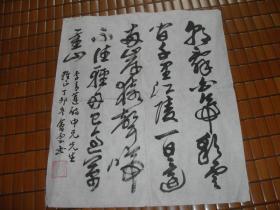 朝辭白帝彩雲
間千里江陵一日還
兩岸猿聲啼
不住輕舟已過萬
重山
李青蓮詩中元先生
雅正丁卯冬